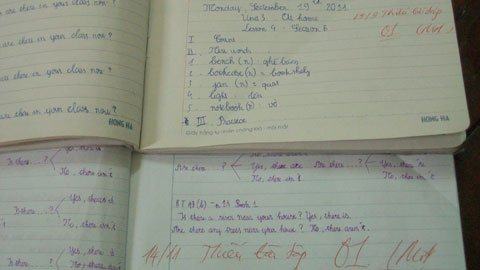 are there in your class now?
are there in your class now?
there in your class now?
are there in your class now?
HONG HA
Monday, September 19th 2011
Unit 3: At home
Lesson 4: Section B
I
II New words
1. bench (n): ghế băng
2. bookcase (n) = bookshelf
3. fan (n) = quạt
4. light: đèn
5. notebook (n): vở
III Practice
19/9 Thiếu bài tập
01 (Một)
HONG HA
Is there ... ?
Yes, there is
No, there isn't
Yes, there is
No, there isn't
Yes, there is
No, there isn't
Are there ... ?
Yes, there are
No, there aren't
Are there ... ?
Yes, there're
No, there aren't
Book 1
Is there a river near your house? Yes, there is.
Are there any trees near your house? No, there aren't.
14/11 Thiếu bài tập 01 (Một